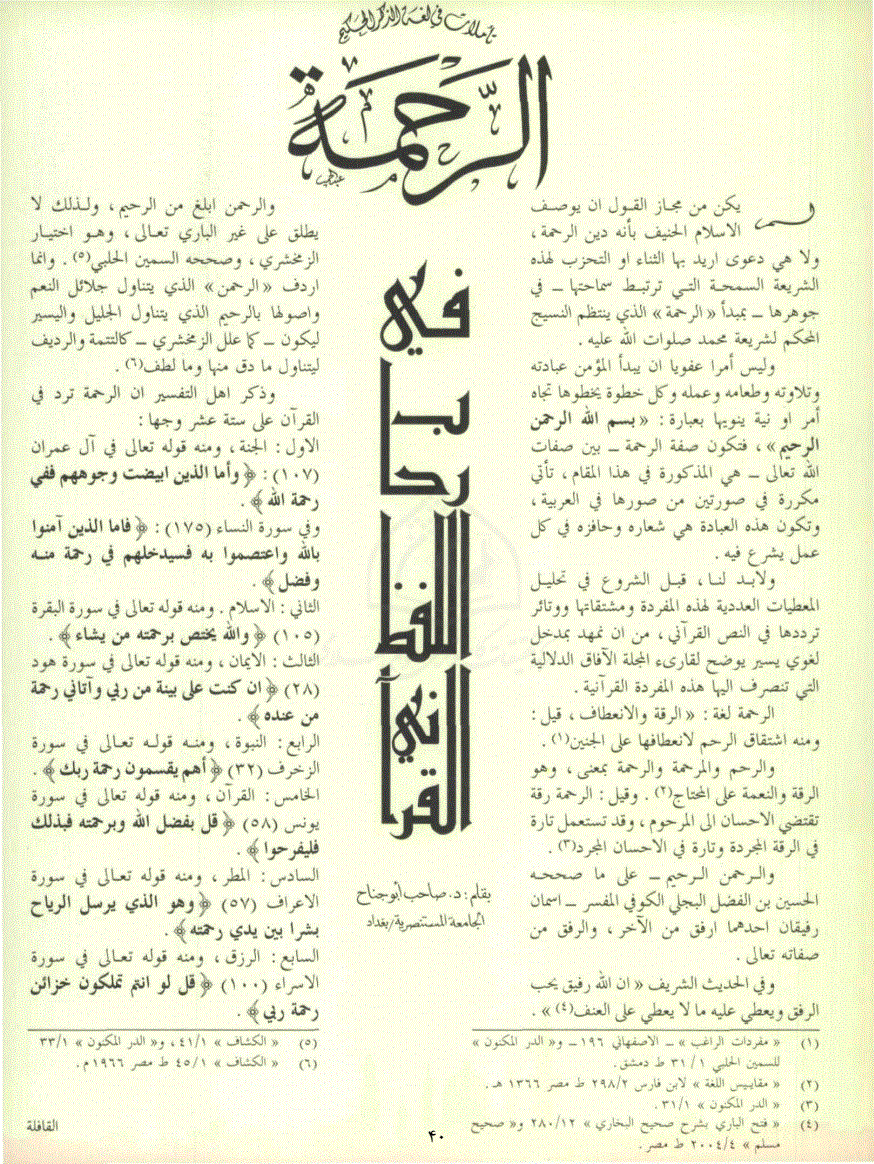 تأملات في لغة الذكر الحكيم
الرحمة
في
بد
ردا
اللفظ
القرآني
بقلم: د. صاحب أبو جناح
الجامعة المستنصرية/بغداد
لم يكن من مجاز القول ان يوصف
الاسلام الحنيف بأنه دين الرحمة،
ولا هي دعوى اريد بها الثناء او التحزب لهذه
الشريعة السمحة التي ترتبط سماحتها ــ في
جوهرها ــ بمبدأ «الرحمة» الذي ينتظم النسيج
المحكم لشريعة محمد صلوات الله عليه .
وليس أمرا عفويا ان يبدأ المؤمن عبادته
وتلاوته وطعامه وعمله وكل خطوة يخطوها تجاه
أمر او نية ينويها بعبارة : «بسم الله الرحمن
الرحيم» ، فتكون صفة الرحمة ــ بين صفات
الله تعالى ــ هي المذكورة في هذا المقام ، تأتي
مكررة في صورتين من صورها في العربية ،
وتكون هذه العبادة هي شعاره وحافزه في كل
عمل يشرع فيه .
ولابد لنا ، قبل الشروع في تحليل
المعطيات العددية لهذه المفردة ومشتقاتها ووتائر
ترددها في النص القرآني ، من ان نمهد بمدخل
لغوي يسير يوضح لقارىء المجلة الآفاق الدلالية
التي تنصرف اليها هذه المفردة القرآنية .
الرحمة لغة : «الرقة والانعطاف ، قيل :
ومنه اشتقاق الرحم لانعطافها على الجنين(١) .
والرحم والمرحمة والرحمة بمعنى ، وهو
الرقة والنعمة على المحتاج(٢) . وقيل : الرحمة رقة
تقتضي الاحسان الى المرحوم ، وقد تستعمل تارة
في الرقة المجردة وتارة في الاحسان المجرد(٣) .
والرحمن الرحيم ــ على ما صححه
الحسين بن الفضل البجلي الكوفي المفسر ــ اسمان
رفيقان احدهما ارفق من الآخر ، والرفق من
صفاته تعالى .
وفي الحديث الشريف « ان الله رفيق يحب
الرفق ويعطي عليه ما لا يعطي على العنف(٤) » .
والرحمن ابلغ من الرحيم ، ولذلك لا
يطلق على غير الباري تعالى ، وهو اختيار
الزمخشري ، وصححه السمين الحلبي(٥) . وانما
اردف «الرحمن» الذي يتناول جلائل النعم
واصولها بالرحيم الذي يتناول الجليل واليسير
ليكون ــ كما علل الزمخشري ــ كالتتمة والرديف
ليتناول ما دق منها وما لطف(٦) .
وذكر اهل التفسير ان الرحمة ترد في
القرآن على ستة عشر وجها :
الاول : الجنة ، ومنه قوله تعالى في آل عمران
(١٠٧) : ﴿ وأما الذين ابيضت وجوههم ففي
رحمة الله ﴾ .
وفي سورة النساء (١٧٥) : ﴿ فاما الذين آمنوا
بالله واعتصموا به فسيدخلهم في رحمة منه
وفضل ﴾ .
الثاني : الاسلام . ومنه قوله تعالى في سورة البقرة
(١٠٥) ﴿ والله يختص برحمته من يشاء ﴾ .
الثالث : الايمان ، ومنه قوله تعالى في سورة هود
(٢٨) ﴿ ان كنت على بينة من ربي وآتاني رحمة
من عنده ﴾ .
الرابع : النبوة ، ومنه قوله تعالى في سورة
الزخرف (٣٢) ﴿ أهم يقسمون رحمة ربك ﴾ .
الخامس : القرآن ، ومنه قوله تعالى في سورة
يونس (٥٨) ﴿ قل بفضل الله وبرحمته فبذلك
فليفرحوا ﴾ .
السادس : المطر ، ومنه قوله تعالى في سورة
الاعراف (٥٧) ﴿ وهو الذي يرسل الرياح
بشرا بين يدي رحمته ﴾ .
السابع : الرزق ، ومنه قوله تعالى في سورة
الاسراء (١٠٠) ﴿ قل لو انتم تملكون خزائن
رحمة ربي ﴾ .
(١) « مفردات الراغب » ــ الاصفهاني ١٩٦ ــ و« الدر المكنون »
للسمين الحلبي ٣١/١ ط دمشق .
(٢) « مقاييس اللغة » لابن فارس ٢٩٨/٢ ط مصر ١٣٦٦ هـ .
(٣) « الدر المكنون » ٣١/١ .
(٤) « فتح الباري بشرح صحيح البخاري » ٢٨٠/١٢ و« صحيح
مسلم » ٢٠٠٤/٤ ط مصر .
(٥) « الكشاف » ٤١/١ ، و« الدر المكنون » ٣٣/١
(٦) « الكشاف » ٤٥/١ ط مصر ١٩٦٦ م .
٤٠
القافلة